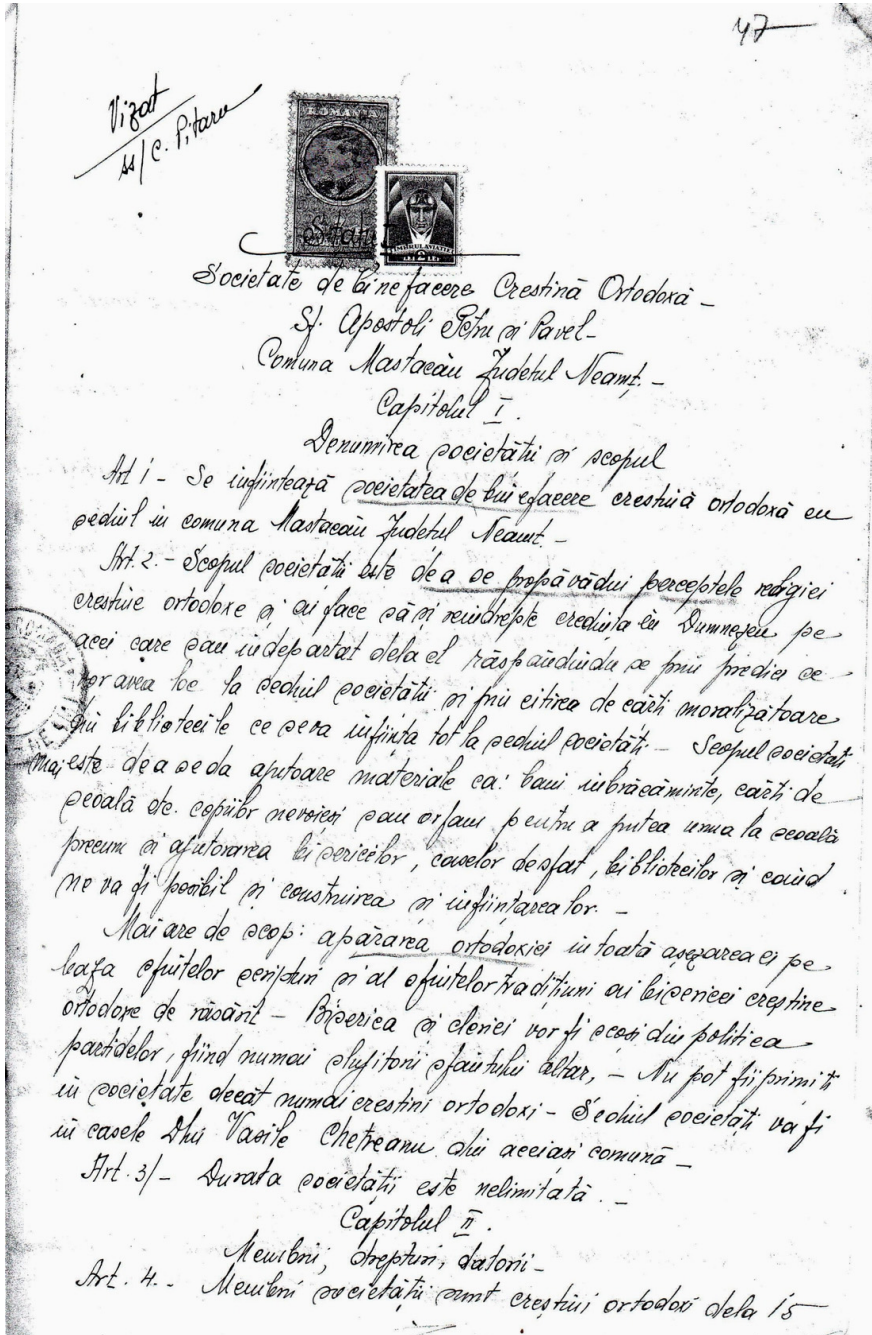 47
Vizat
ss/ C. Pitaru
ROMANIA
Statut
TIMBRUL AVIATIEI
Societate de binefacere Crestină Ortodoxă –
Sf. Apostoli Petru si Pavel –
Comuna Mastacău Judetul Neamț. –
Capitolul I.
Denumirea societătii si scopul
Art 1 – Se infiintează societatea de binefacere crestină ortodoxă cu
sediul in comuna Mastacău Judetul Neamt. –
Art. 2. – Scopul societătii este de a se propăvădui perceptele religiei
crestine ortodoxe si ai face să si reindrepte credința in Dumnezeu pe
acei care sau indepartat dela el răspăndindu se prin predici ce
vor avea loc la sediul societătii si prin citirea de cărti moralizătoare
din bibliotecile ce se va infiinta tot la sediul societăti – Scopul societati
mai este de a se da ajutoare materiale ca: bani imbrăcăminte, cărti de
scoală etc. copiilor nevoiesi sau orfani pentru a putea urma la scoală
precum si ajutorarea bisericilor, caselor de sfat, bibliotecilor si cănd
ne va fi posibil si construirea si infiintarea lor. –
Mai are de scop: apărarea ortodoxiei in toată așezarea ei pe
baza sfintelor scripturi si al sfintelor tradițiuni ai bisericei creștine
ortodoxe de răsărit – Biserica si clerici vor fi scosi din politica
partidelor, fiind numai slujitorii sfăntului altar, – Nu pot fii primiti
in societate decăt numai crestini ortodoxi – Sediul societăți va fi
in casele Dlui Vasile Chetreanu din aceiasi comună –
Art. 3/ – Durata societății este nelimitată. –
Capitolul II.
Membrii, drepturi, datorii –
Art. 4. – Membrii societății sunt creștini ortodoxi dela 15